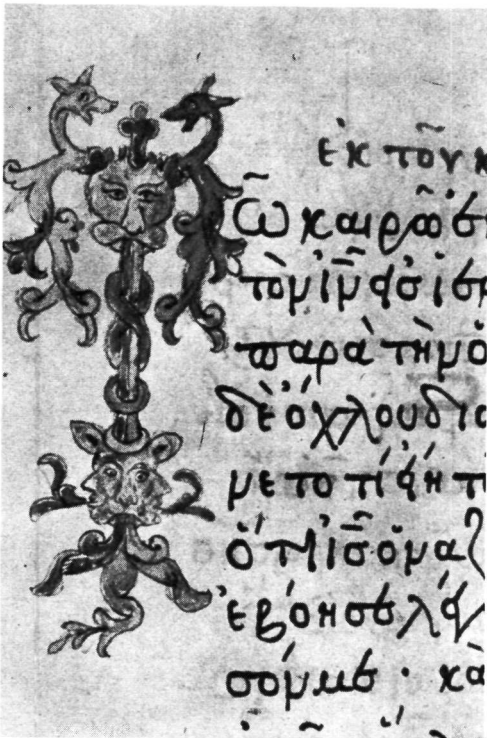 ἐκ τοῦ κ
Τῶ καιρῶ ἐκ
τὸν ἰ̅ν̅ εἰς ἱε
παρὰ τὴν ὁ
δὲ ὄχλου δια
νετο τί εἴη τ
ὅτι ἰ̅ς̅ ὁ ναζ
ἐβόησε λέγ
σόν με · κὰ